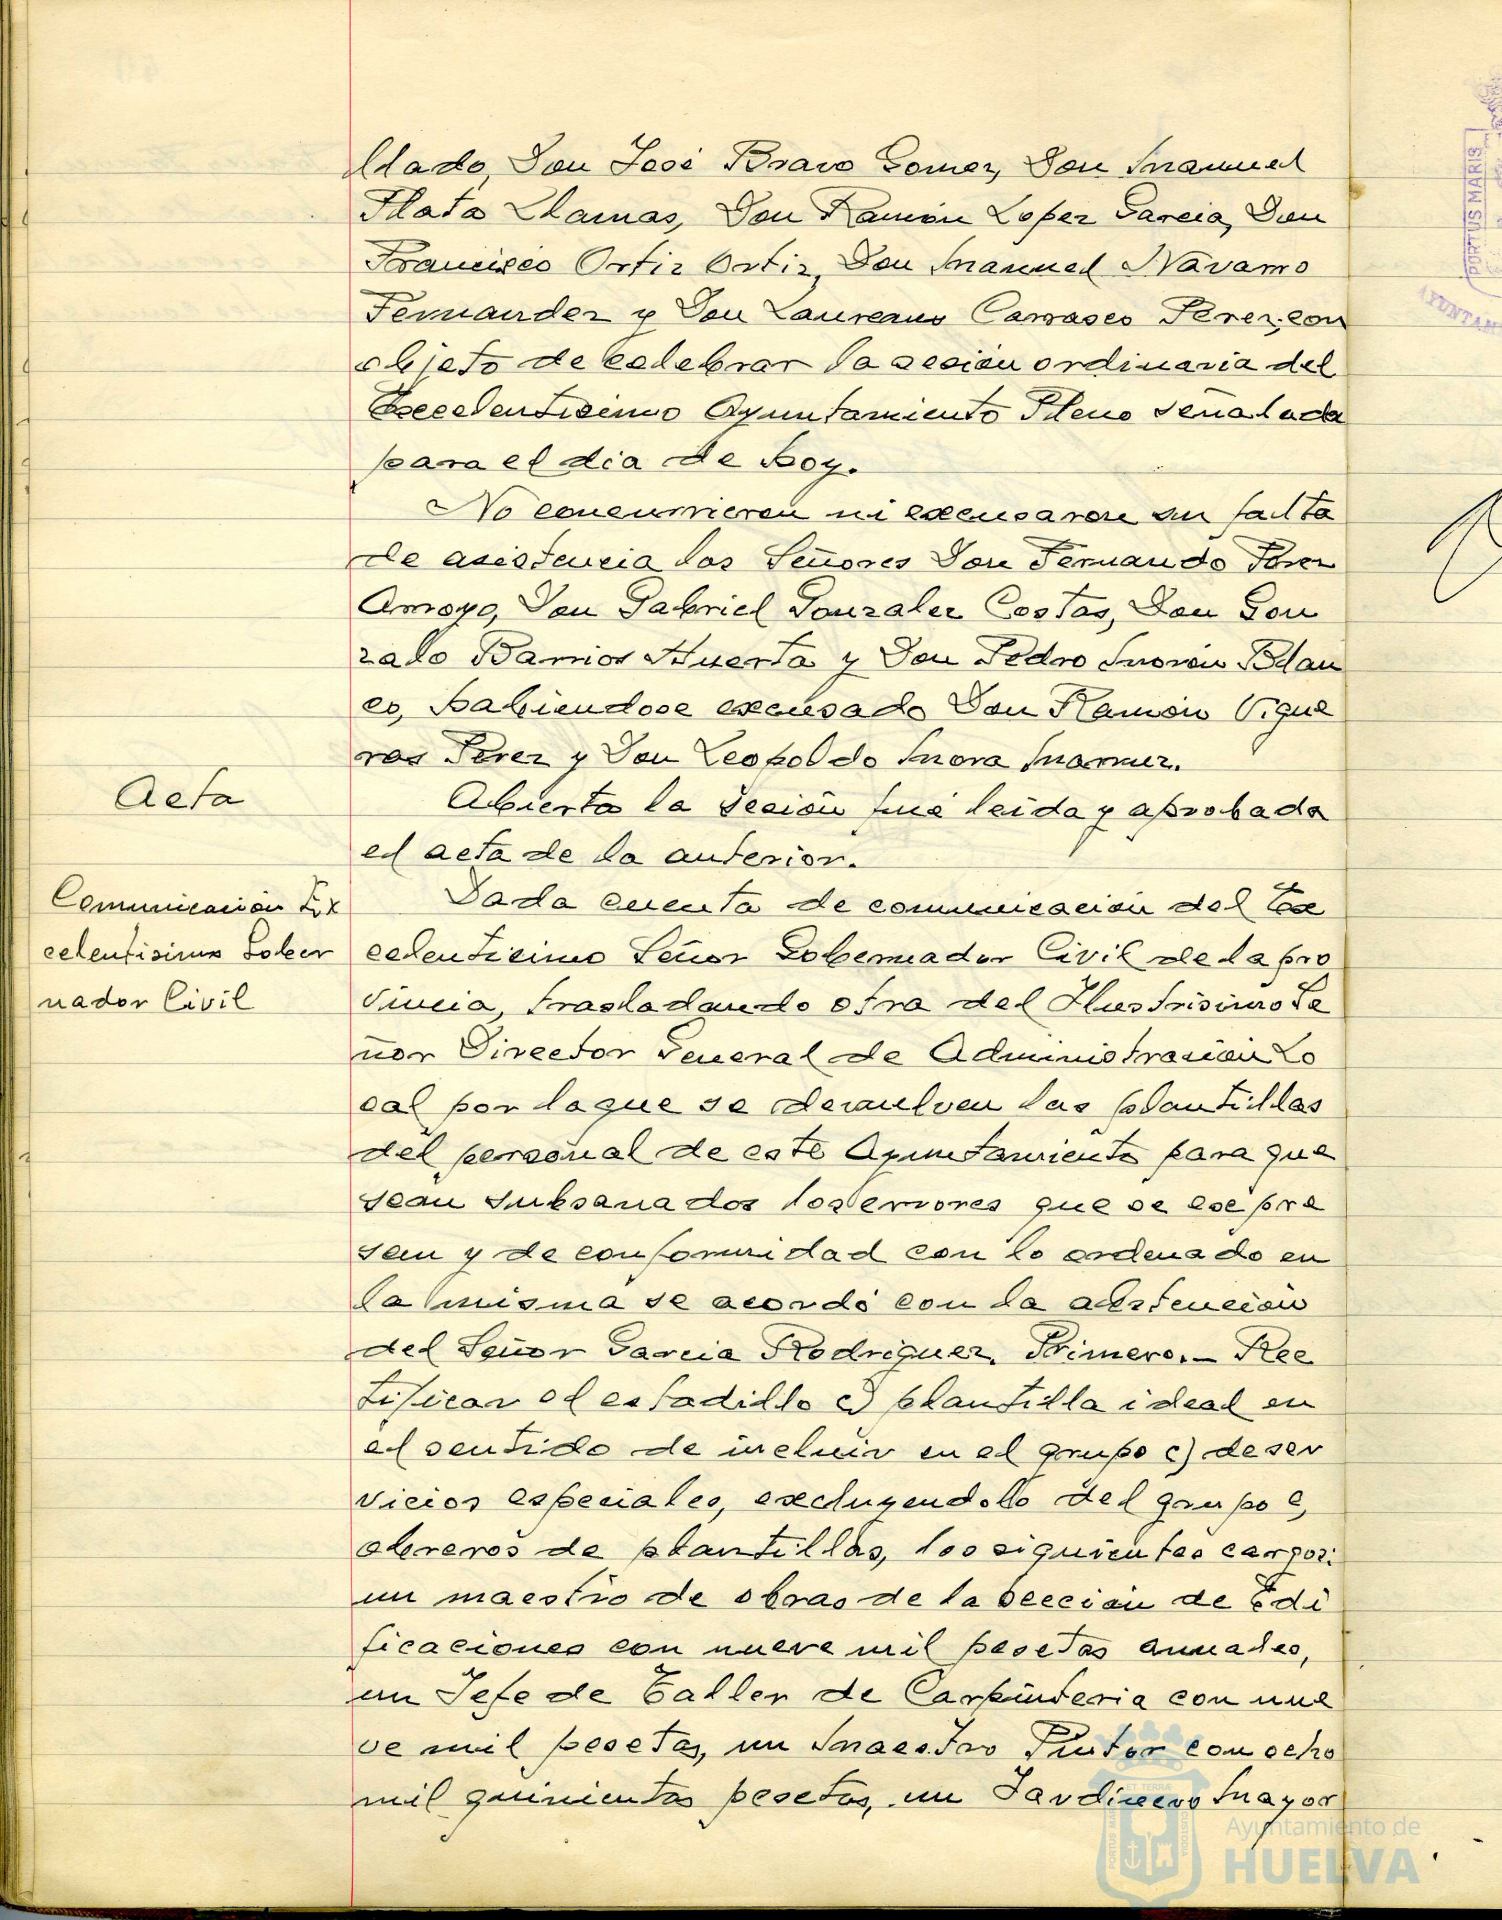 llado, Don José Bravo Gomez, Don Manuel
Plata Llamas, Don Ramón Lopez Garcia, Don
Francisco Ortiz Ortiz, Don Manuel Navarro
Fernandez y Don Laureano Carrasco Perez, con
objeto de celebrar la sesión ordinaria del
Excelentisimo Ayuntamiento Pleno señalada
para el dia de hoy.
No concurrieron ni excusaron su falta
de asistencia los Señores Don Fernando Perez
Arroyo, Don Gabriel Gonzalez Costas, Don Gon
zalo Barrios Huerta y Don Pedro Morón Blan
co, habiendose excusado Don Ramón Vigue
ras Perez y Don Leopoldo Mora
Acta
Abierta la sesión fué leida y aprobada
el acta de la anterior.
Comunicación Ex
celentisimo Gober
nador Civil
Dada cuenta de comunicación del Ex
celentisimo Señor Gobernador Civil de la pro
vincia, trasladando otra del Ilustrisimo Se
ñor Director General de Administración Lo
cal por la que se devuelven las plantillas
del personal de este Ayuntamiento para que
sean subsanados los errores que se expre
san y de conformidad con lo ordenado en
la misma se acordó con la abstención
del Señor Garcia Rodriguez. Primero.- Rec
tificar el estadillo c) plantilla ideal en
el sentido de incluir en el grupo c) de ser
vicios especiales, excluyendolo del grupo e,
obreros de plantillas, los siguientes cargos:
un maestro de obras de la sección de Edi
ficaciones con nueve mil pesetas anuales,
un Jefe de Taller de Carpinteria con nue
ve mil pesetas, un Maestro Pintor con ocho
mil quinientas pesetas, un Jardinero Mayor
PORTUS MARIS
AYUNTAM
Ayuntamiento de
HUELVA